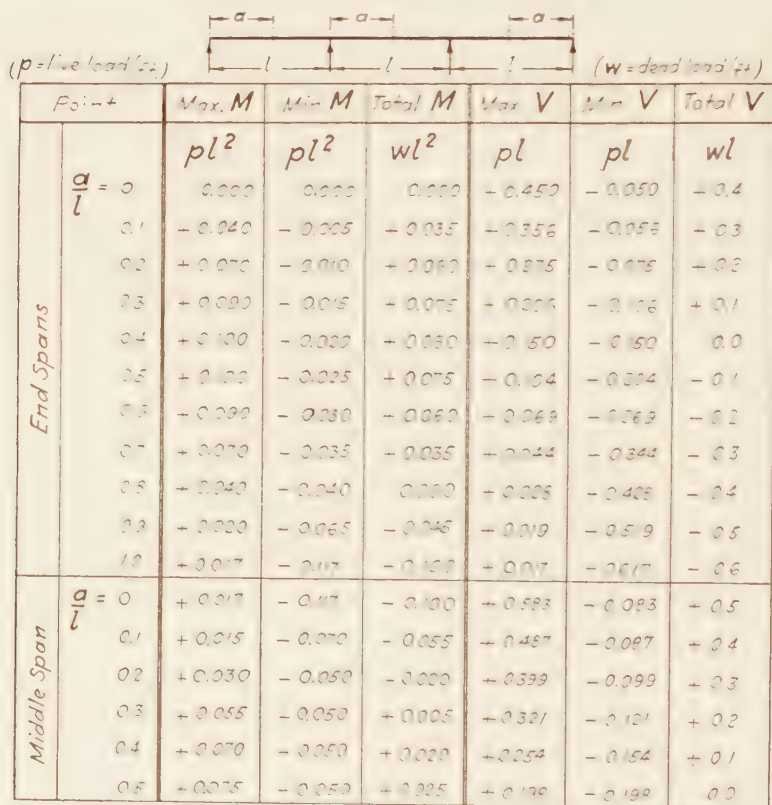 a a a
(p = live load/ft) l l l (w = dead load/ft)
Point Max. M Min M Total M Max V Min V Total V
pl² pl² wl² pl pl wl
End Spans
a/l = 0 0.000 0.000 0.000 + 0.450 - 0.050 + 0.4
0.1 + 0.040 - 0.005 + 0.035 + 0.356 - 0.056 + 0.3
0.2 + 0.070 - 0.010 + 0.060 + 0.275 - 0.075 + 0.2
0.3 + 0.090 - 0.015 + 0.075 + 0.206 - 0.106 + 0.1
0.4 + 0.100 - 0.020 + 0.080 + 0.150 - 0.150 0.0
0.5 + 0.100 - 0.025 + 0.075 - 0.1
0.6 + 0.090 - 0.030 + 0.060 + 0.069 - 0.269 - 0.2
0.7 + 0.070 - 0.035 + 0.035 + 0.044 - 0.344 - 0.3
0.8 + 0.040 - 0.040 0.000 - 0.4
0.9 + 0.020 - 0.065 - 0.045 + 0.019 - 0.519 - 0.5
1.0 + 0.017 - 0.117 - 0.100 + 0.017 - 0.617 - 0.6
Middle Span
a/l = 0 + 0.017 - 0.117 - 0.100 + 0.583 - 0.083 + 0.5
0.1 + 0.015 - 0.070 - 0.055 + 0.487 - 0.087 + 0.4
0.2 + 0.030 - 0.050 - 0.020 + 0.399 - 0.099 + 0.3
0.3 + 0.055 - 0.050 + 0.005 + 0.321 - 0.121 + 0.2
0.4 + 0.070 - 0.050 + 0.020 + 0.254 - 0.154 + 0.1
0.5 + 0.075 - 0.050 + 0.025 + 0.198 - 0.198 0.0